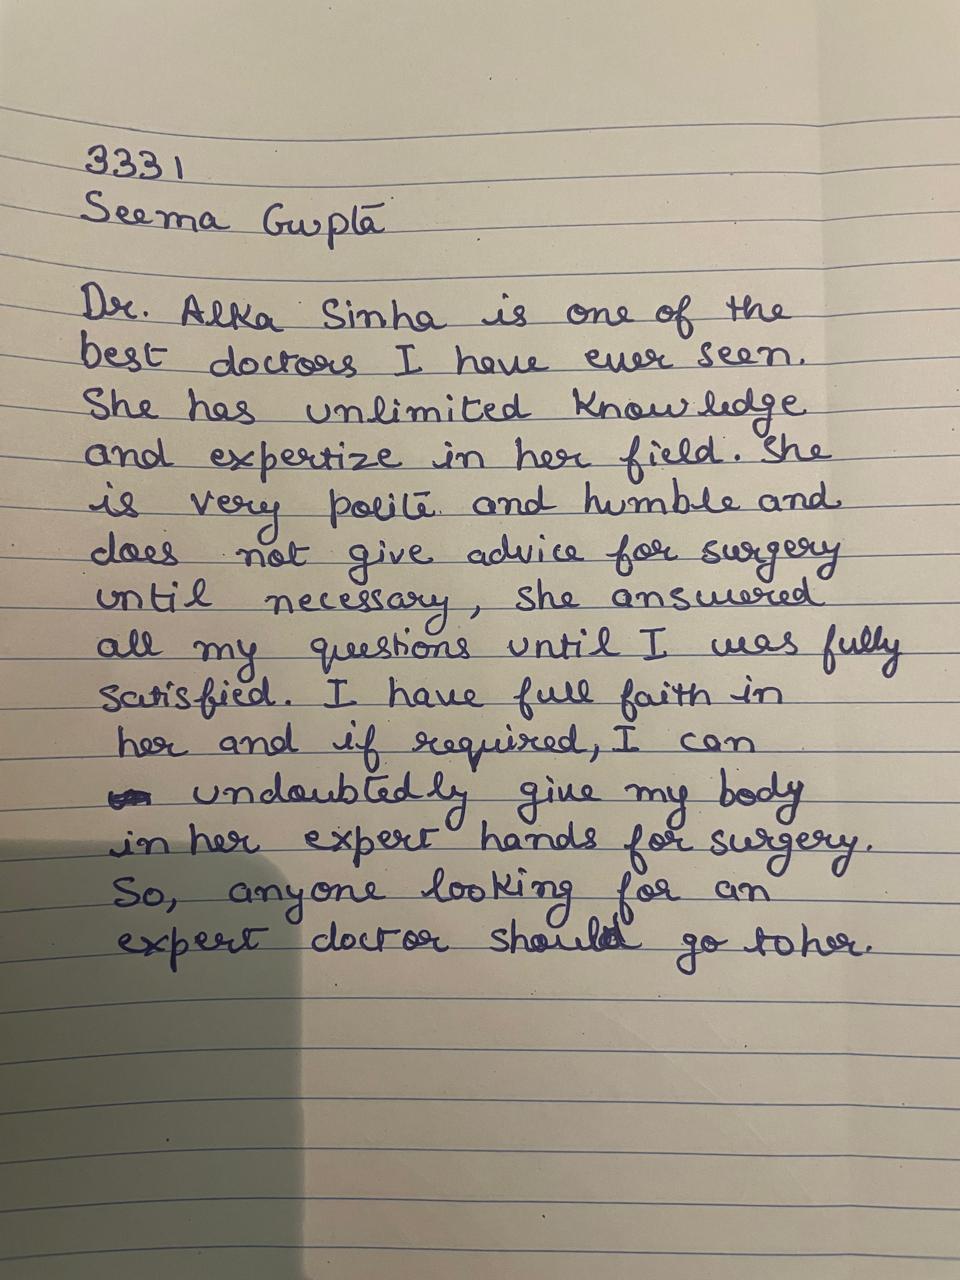 3331
Seema Gupta
Dr. Alka Sinha is one of the
best doctors I have ever seen.
She has unlimited knowledge
and expertize in her field. She
is very polite and humble and
does not give advice for surgery
until necessary, she answered
all my questions until I was fully
satisfied. I have full faith in
her and if required, I can
undoubtedly give my body
in her expert hands for surgery.
So, anyone looking for an
expert doctor should go to her.